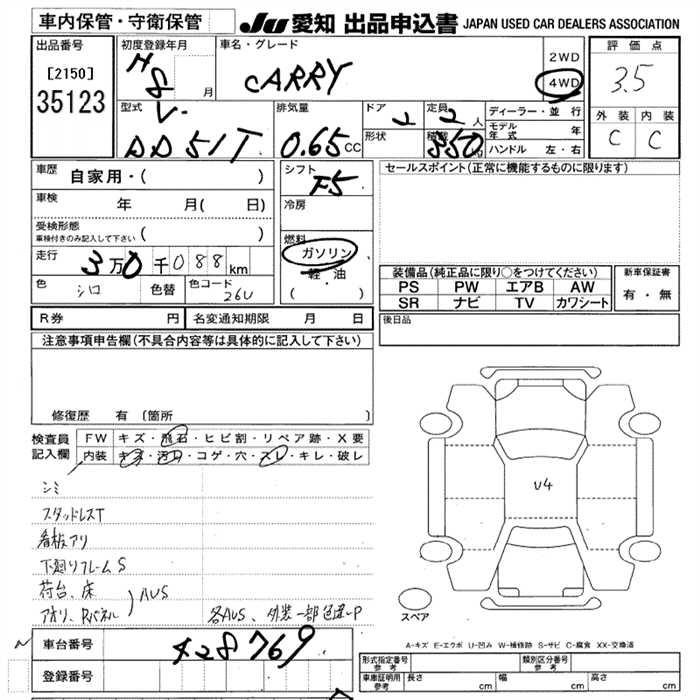 車内保管・守衛保管
JU 愛知 出品申込書 JAPAN USED CAR DEALERS ASSOCIATION
出品番号
[2150]
35123
初度登録年月
H8 月
車名・グレード
CARRY
2WD
4WD
評価点
3.5
外装 内装
C C
型式
V-DD51T
排気量
0.65 CC
ドア
2
形状
定員
2 人
積載
350
ディーラー・並行
モデル年式 年
ハンドル 左・右
車歴
自家用・( )
車検
年 月( 日)
受検形態
車検付きのみ記入して下さい ( )
走行
3万0千088km
色
シロ
色替
色コード
26U
シフト
F5
冷房
燃料
ガソリン
軽・油
( ・ )
セールスポイント(正常に機能するものに限ります)
装備品(純正品に限り○をつけてください)
PS PW エアB AW
SR ナビ TV カワシート
新車保証書
有・無
R券 円 名変通知期限 月 日
後日品
注意事項申告欄(不具合内容等は具体的に記入して下さい)
修復歴 有 〔箇所 〕
検査員記入欄
FW キズ・飛石・ヒビ割・リペア跡・X要
内装 キズ・汚れ・コゲ・穴・スレ・キレ・破レ
シミ
スタッドレスT
看板アリ
下廻りフレームS
荷台、床
アオリ、Rパネル
AUS
各AUS、外装一部色違いP
U4
スペア
A-キズ E-エクボ U-凹み W-補修跡 S-サビ C-腐食 XX-交換済
車台番号
428769
登録番号
形式指定番号
参考
類別区分番号
参考
車庫証明用
参考
長さ cm 幅 cm 高さ cm